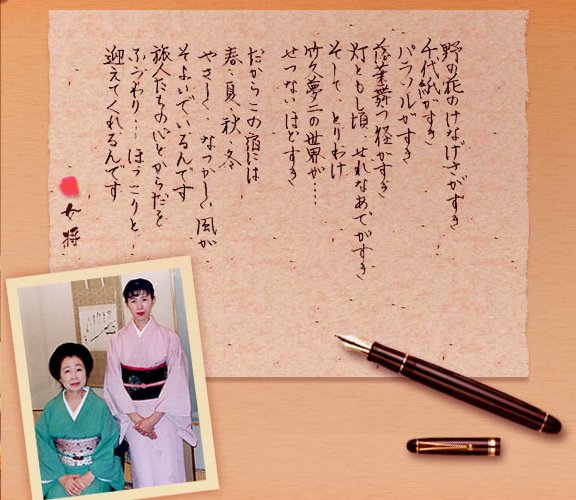 野の花のけなげさがすき
千代紙がすき
パラソルがすき
落葉舞う径がすき
灯ともし頃、せれなあでがすき
そして、とりわけ
竹久夢二の世界が‥‥
せつないほどすき
だからこの宿には
春、夏、秋、冬
やさしく、なつかしく、風が
そよいでいるんです
旅人たちの心とからだを
ふうわり…ほっこりと
迎えてくれるんです
女将